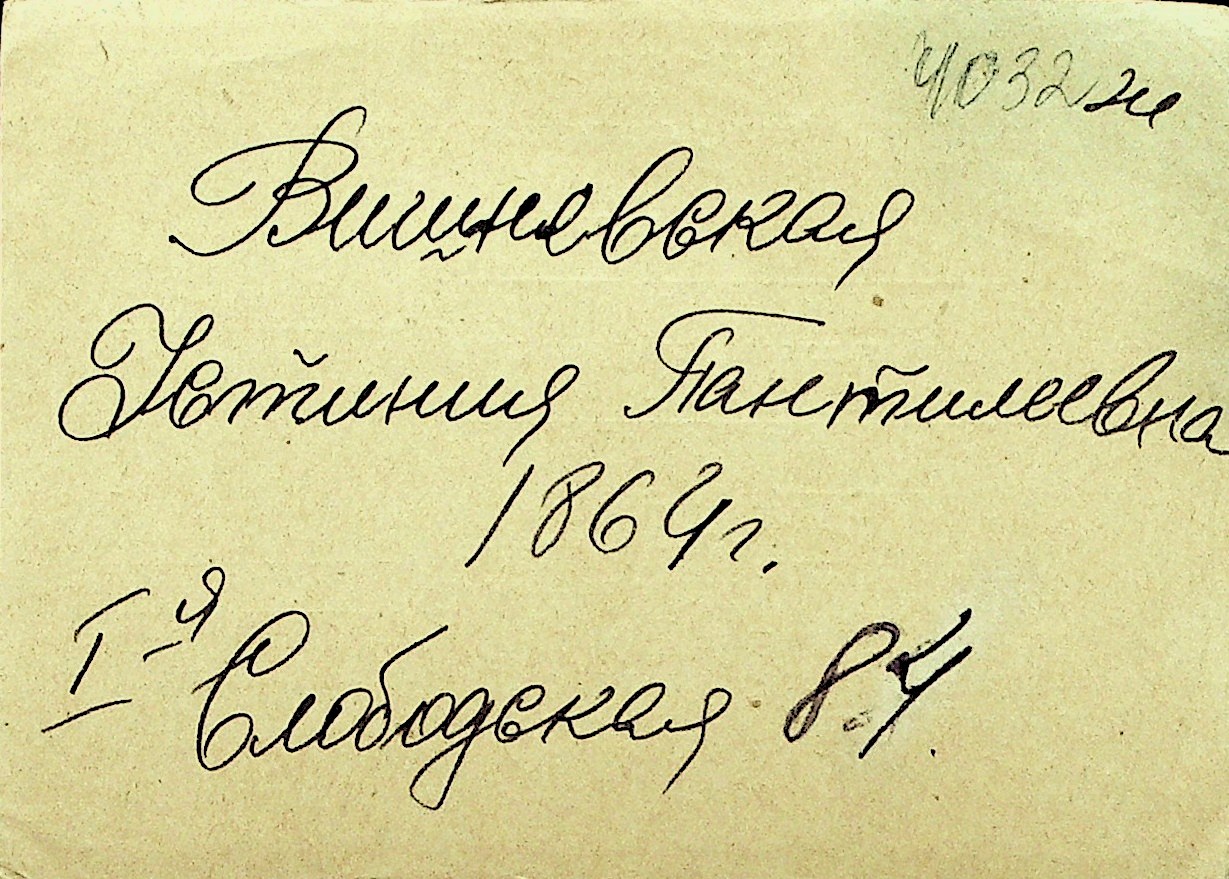 4032 эи
Вишневская
Устиния Пантилеевна
1864г.
I-я Слободская 84.